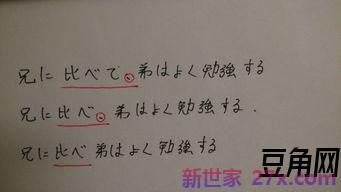 兄に比べて、弟はよく勉強する
兄に比べ、弟はよく勉強する.
兄に比べ弟はよく勉強する
豆角网
新世家 27x.com